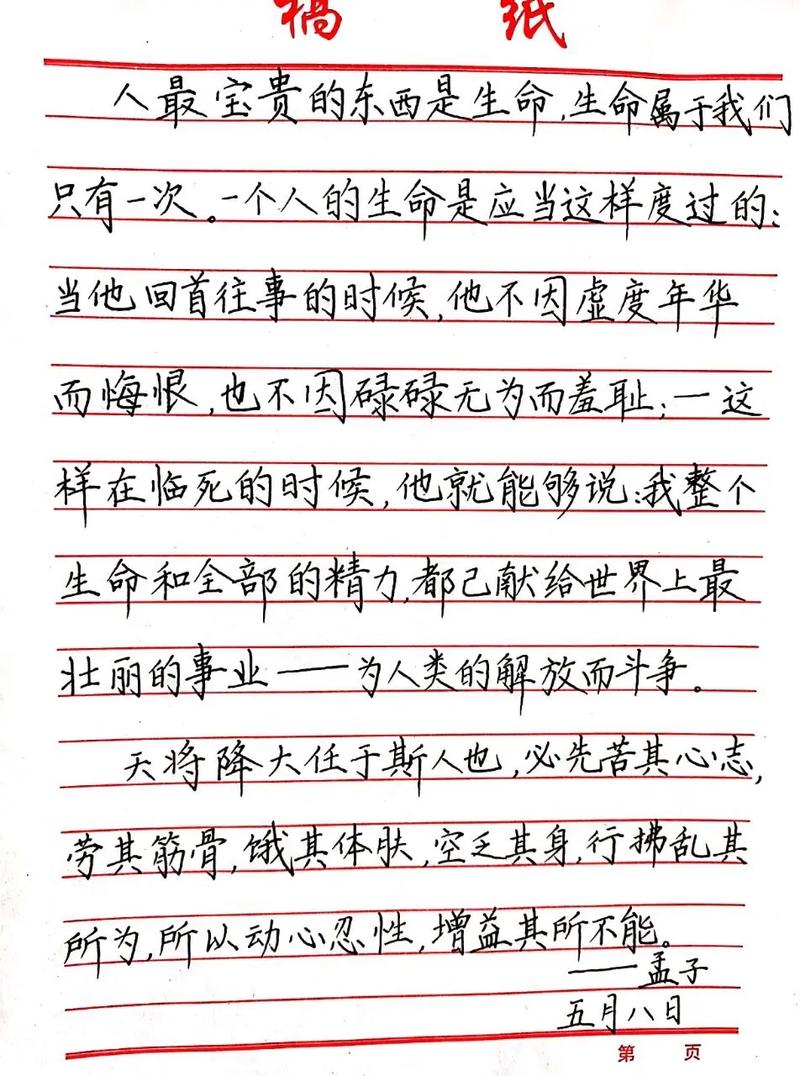 稿 纸
人最宝贵的东西是生命,生命属于我们
只有一次。一个人的生命是应当这样度过的:
当他回首往事的时候,他不因虚度年华
而悔恨,也不因碌碌无为而羞耻;一这
样在临死的时候,他就能够说:我整个
生命和全部的精力,都已献给世界上最
壮丽的事业——为人类的解放而斗争。
天将降大任于斯人也,必先苦其心志,
劳其筋骨,饿其体肤,空乏其身,行拂乱其
所为,所以动心忍性,增益其所不能。
——孟子
五月八日
第 页